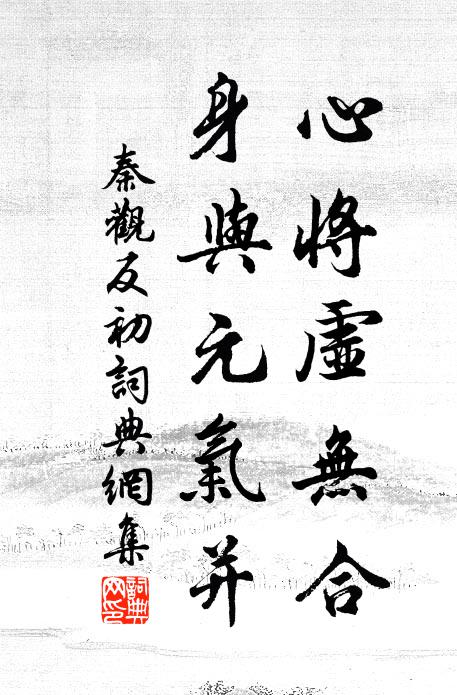 心將虛無合
身與元氣并
秦觀反初詞典網集
詞典
网印